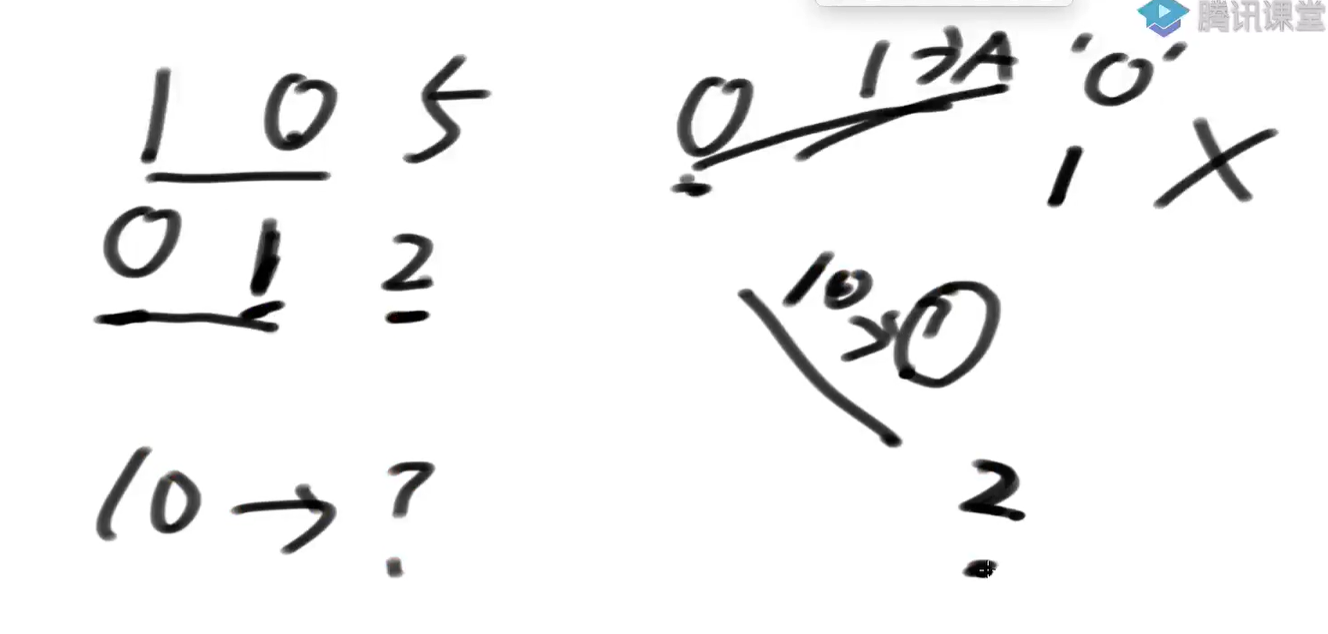 腾讯课堂
1 0 5
0 1 2
10 → ?
0 1 >A '0'
1 X
10 >
2